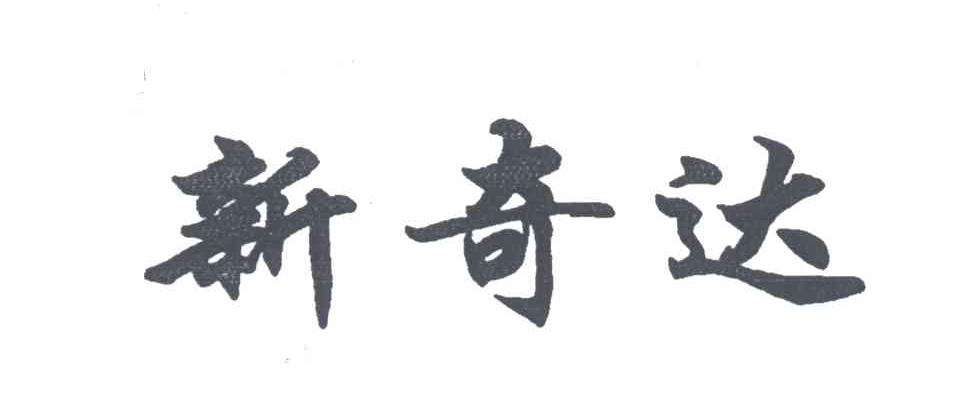 新奇达